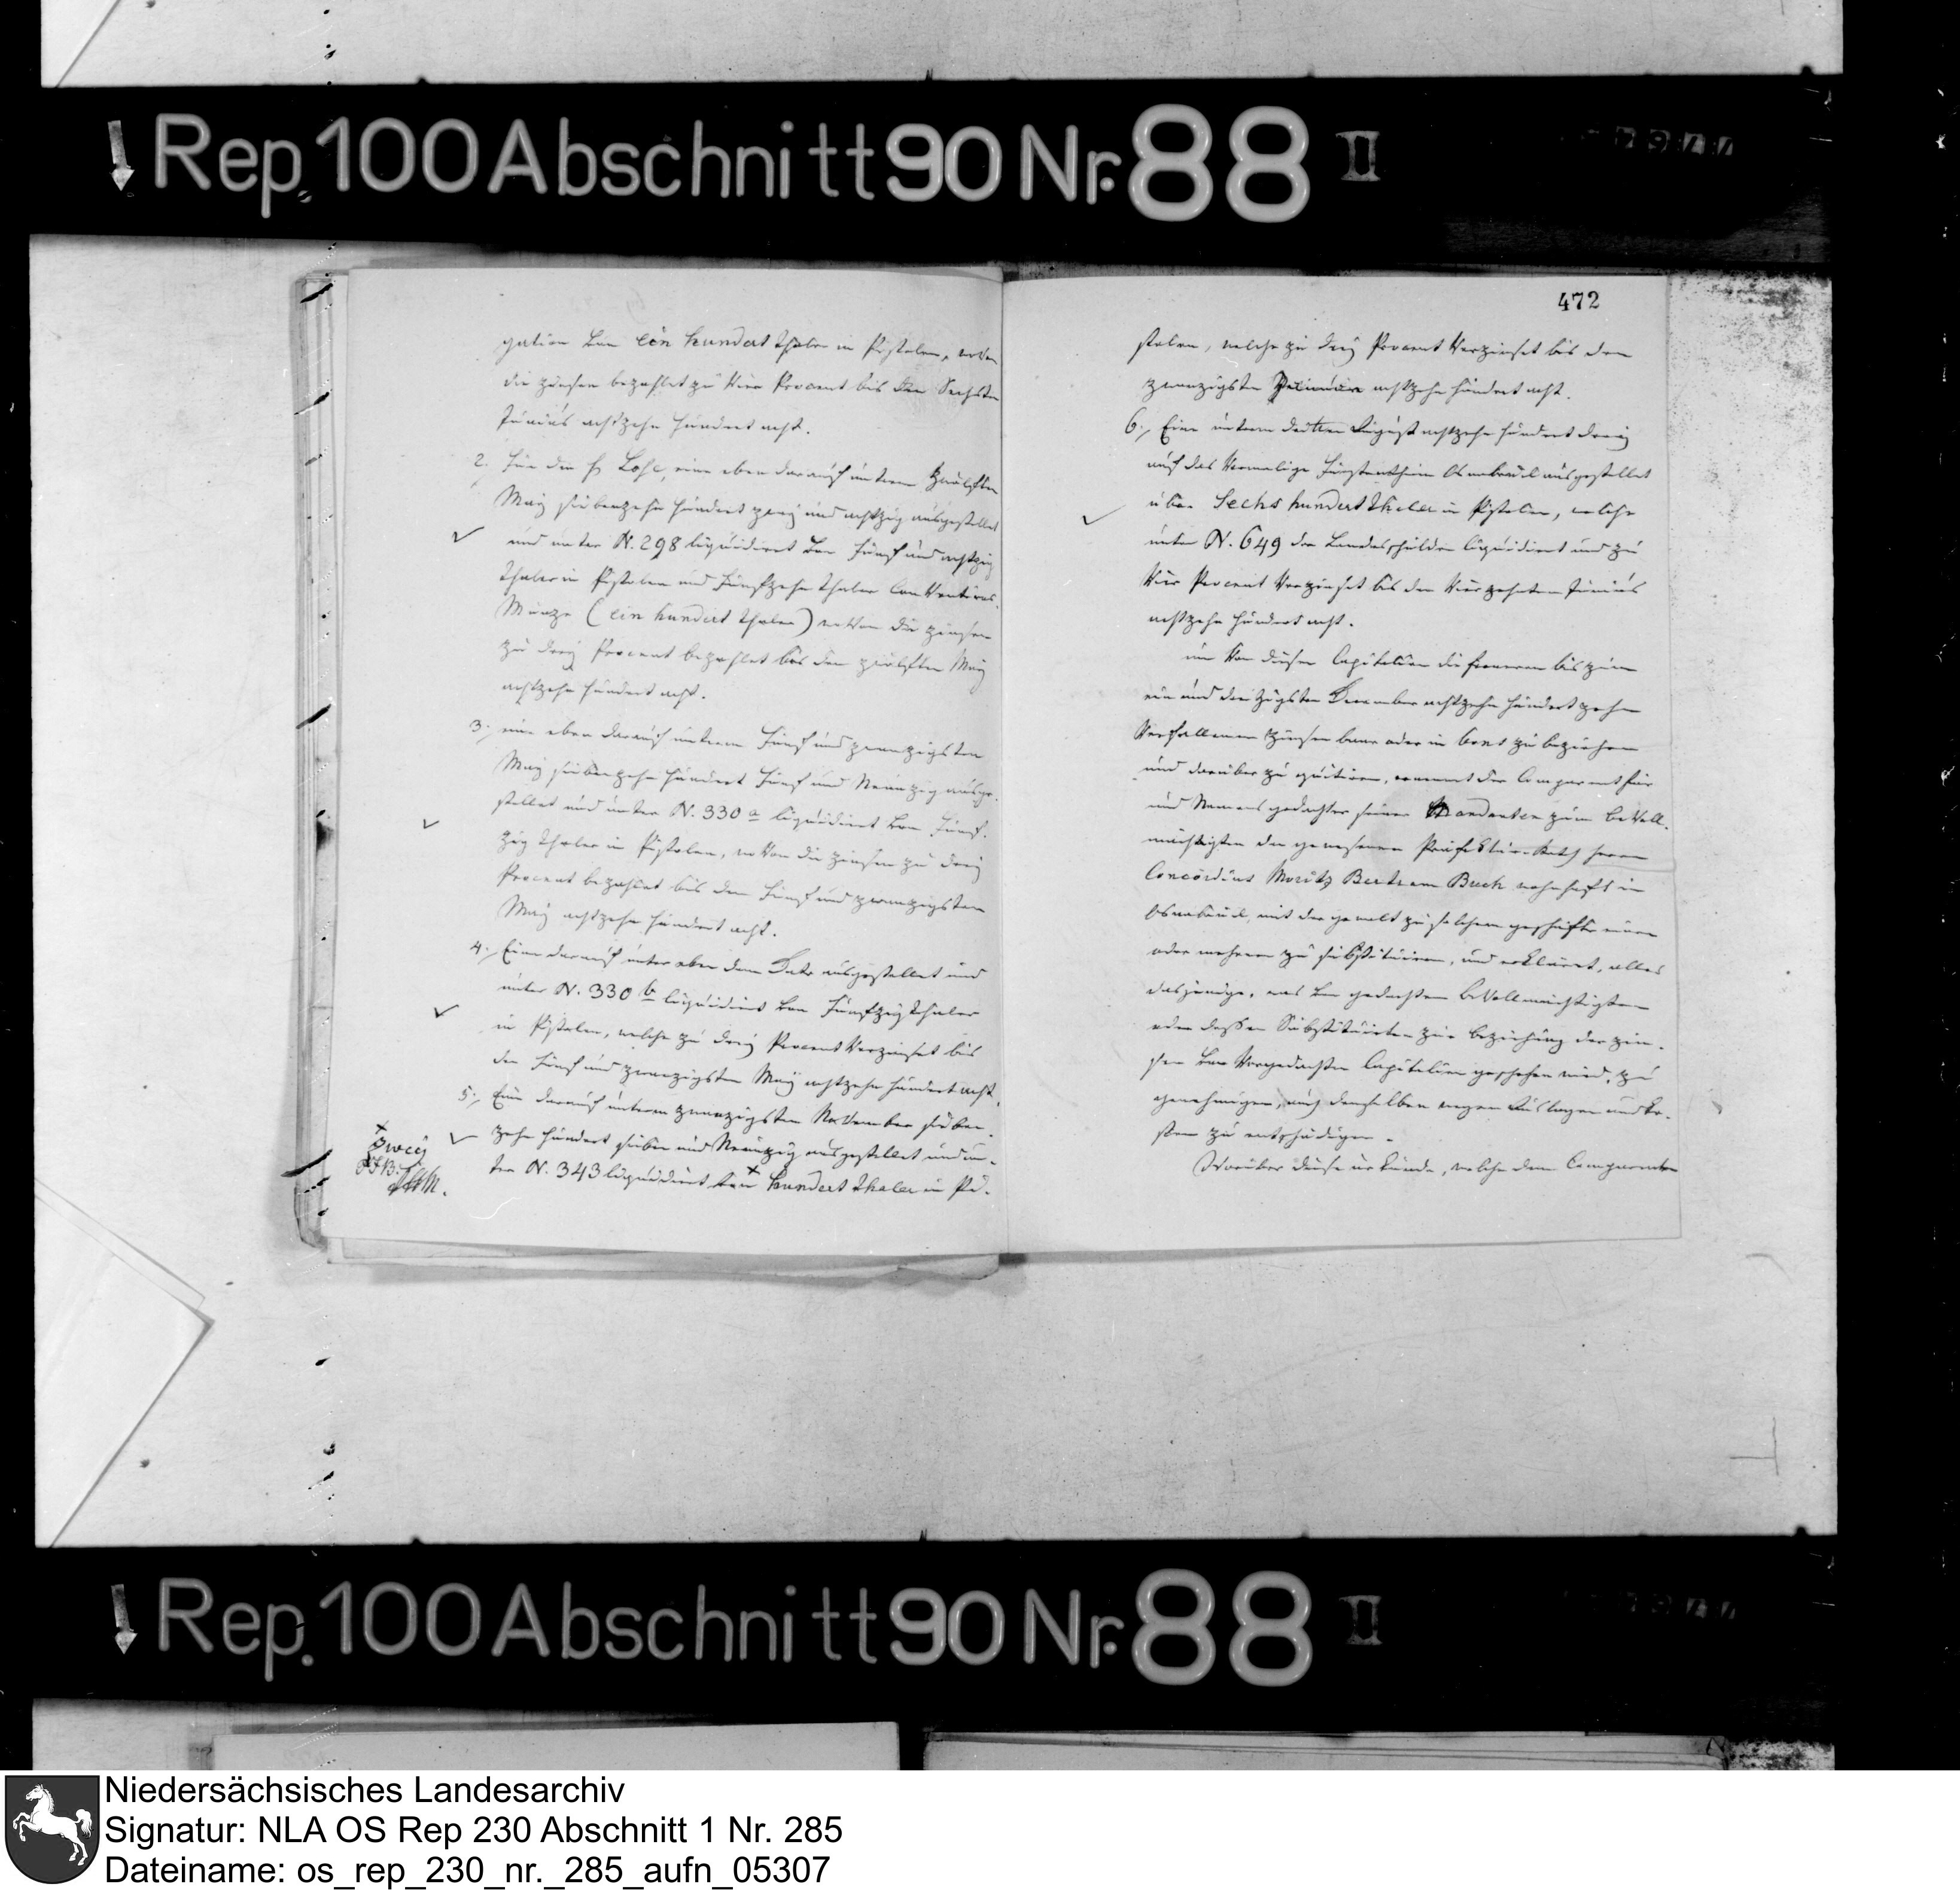 Rep. 100 Abschnitt 90 Nr. 88 II
gation von ein hundert Thaler in Pistolen, wovon
die Zinsen bezahlet zu Vier Procent bis den Sechsten
Junius achtzehn hundert acht.
2. Für den H. Lohe, eine eben darauf unterm zwölften
May siebenzehn hundert zwey und achtzig ausgestellet
und unter N. 298 liquidiret von Fünf und achtzig
Thaler in Pistolen und Fünfzehn Thaler Conventions-
Münze (ein hundert Thaler) wovon die Zinsen
zu drey Procent bezahlet bis den zwölften May
achtzehn hundert acht.
3., eine eben darauf unterm Fünf und zwanzigsten
May siebenzehn hundert Fünf und Neunzig ausge-
stellet und unter N. 330 a liquidiret von Fünf-
zig Thaler in Pistolen, wovon die Zinsen zu drey
Procent bezahlet bis den Fünf und zwanzigsten
May achtzehn hundert acht.
4., Eine darauf unter eben dem Dato ausgestellet und
unter N. 330 b liquidiret von Fünfzig Thaler
in Pistolen, welche zu drey Procent Verzinset bis
den Fünf und zwanzigsten May achtzehn hundert acht.
5., Eine darauf unterm zwanzigsten November sieben-
zehn hundert sieben und Neunzig ausgestellet und un-
ter N. 343 liquidiret von × hundert Thaler in Pi-
× zwey
472
stolen, welche zu drey Procent Verzinset bis den
zwanzigsten achtzehn hundert acht.
6., Eine unterm dritten August achtzehn hundert drey
auf das Vormalige Fürstenthum Osnabrück ausgestellet
über Sechs hundert Thaler in Pistolen, welche
unter N. 649 der Landesschulden liquidiret und zu
Vier Procent Verzinset bis den Vierzehnten Junius
achtzehn hundert acht.
um Von diesen Capitalien die ferneren bis zum
ein und dreizigsten December achtzehn hundert zehn
Verfallenen Zinsen baar oder in Bons zu beziehen
und darüber zu quitiren, ernennt der Comparent für
und Namens gedachter seiner Mandanten zum Bevoll-
mächtigten den gewesenen Präfektur-Rath Herrn
Concordius Moritz Bertram Buch wohnhaft in
Osnabrück, mit der Gewalt zu solchem Geschäfte einen
oder mehrere zu substituiren, und erkläret, alles
dasjenige, was von gedachtem Bevollmächtigten
oder dessen Substituirten zur Beziehung der Zin-
sen von Vorgedachten Capitalien geschehen wird, zu
genehmigen, auch denselben wegen Auslagen und Ko-
sten zu entschädigen.
Worüber diese Urkunde, welche dem Comparenten
Rep. 100 Abschnitt 90 Nr. 88 II
Niedersächsisches Landesarchiv
Signatur: NLA OS Rep 230 Abschnitt 1 Nr. 285
Dateiname: os_rep_230_nr._285_aufn_05307